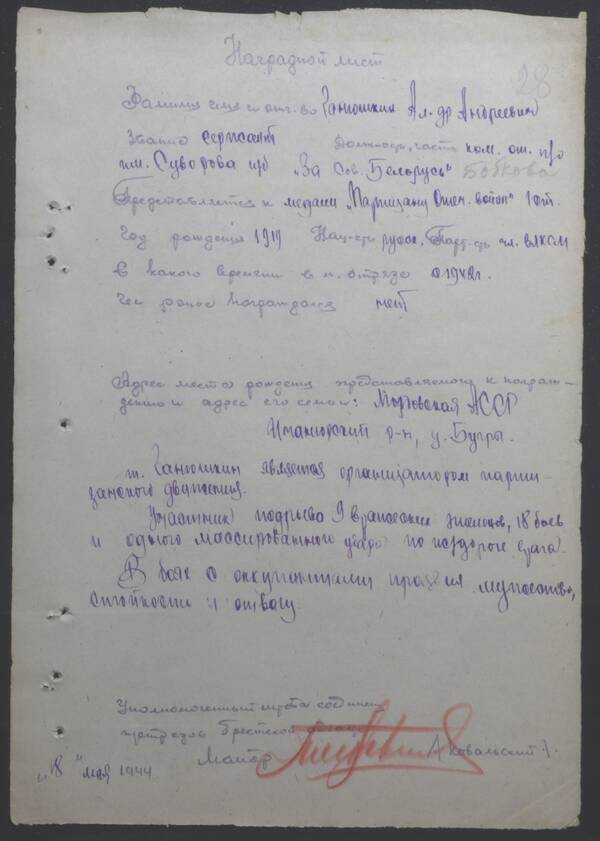 Наградной лист
28
Фамилия имя и отч.-во Ганюшкин Ал-др Андреевич
Звание сержант Должность, часть ком. от. п/о
им. Суворова п/б "За Сов. Белорусь" Бобкова
Представляется к медали "Партизану Отеч. войны" I ст.
Год рождения 1919 Нац-сть русск. Парт-сть чл. ВЛКСМ
С какого времени в п. отряде с 1942 г.
Чем ранее награждался нет
Адрес места рождения представляемого к награж-
дению и адрес его семьи: Мордовская АССР
р-н, Бугры.
т. Ганюшкин является организатором парти-
занского движения.
Участник подрыва 9 вражеских эшелонов, 18 боев
и одного массированного удара по жел/дороге врага.
В боях с оккупантами проявил мужество,
стойкость и отвагу
Уполномоченный штаба соедин.
партотрядов Брестской области
Майор А Ковальский
"18" мая 1944